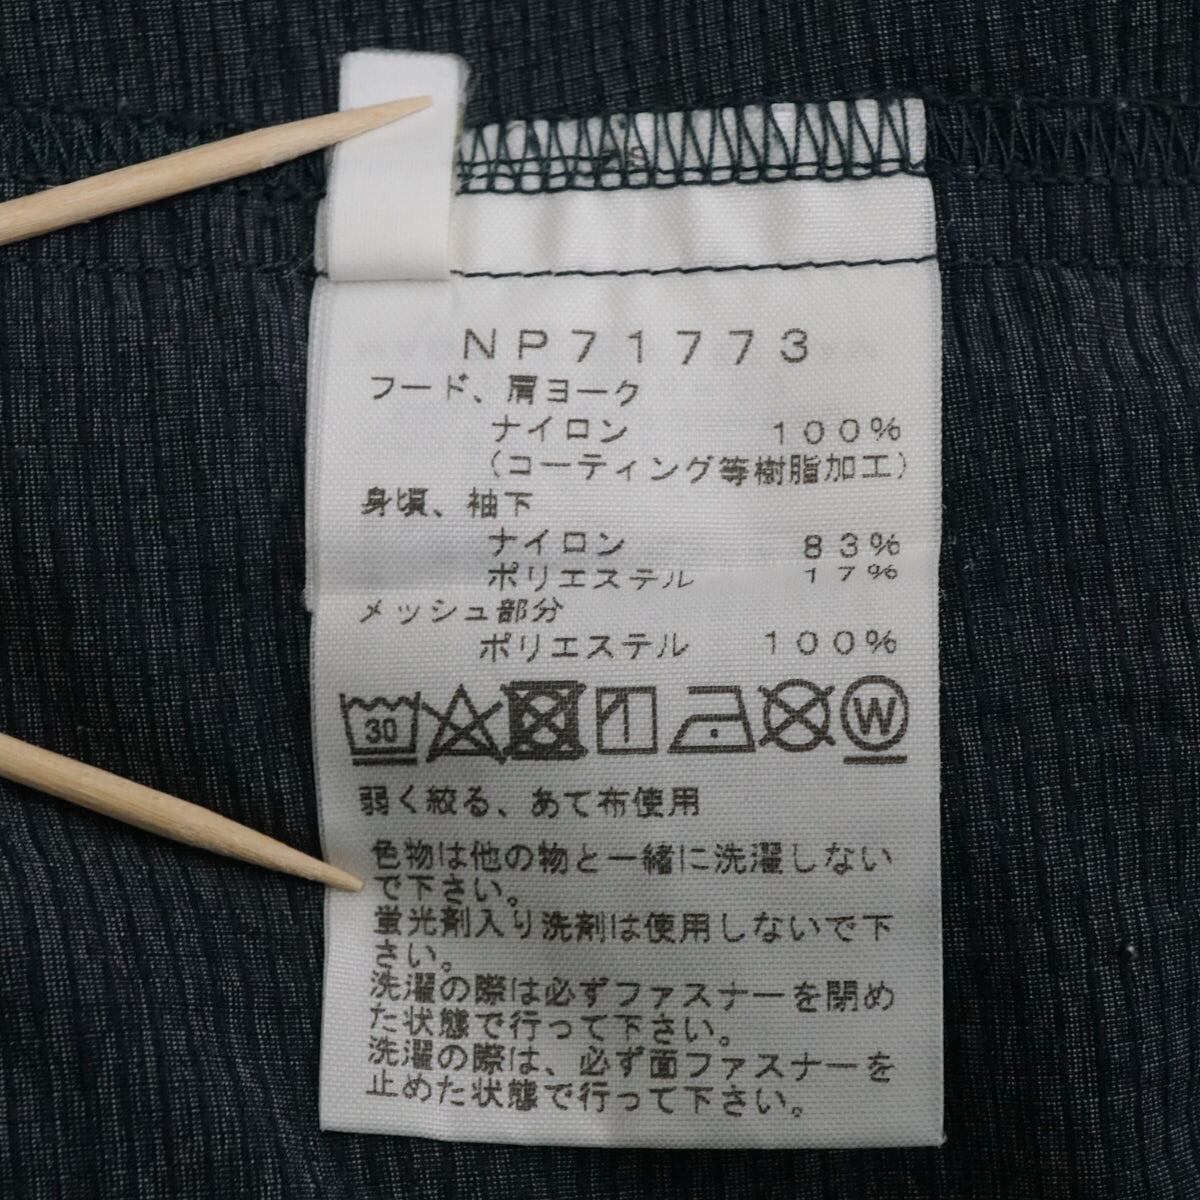 NP71773
フード、肩ヨーク
ナイロン 100%
(コーティング等樹脂加工)
身頃、袖下
ナイロン 83%
ポリエステル 17%
メッシュ部分
ポリエステル 100%
30 W
弱く絞る、あて布使用
色物は他の物と一緒に洗濯しない
で下さい。
蛍光剤入り洗剤は使用しないで下
さい。
洗濯の際は必ずファスナーを閉め
た状態で行って下さい。
洗濯の際は、必ず面ファスナーを
止めた状態で行って下さい。